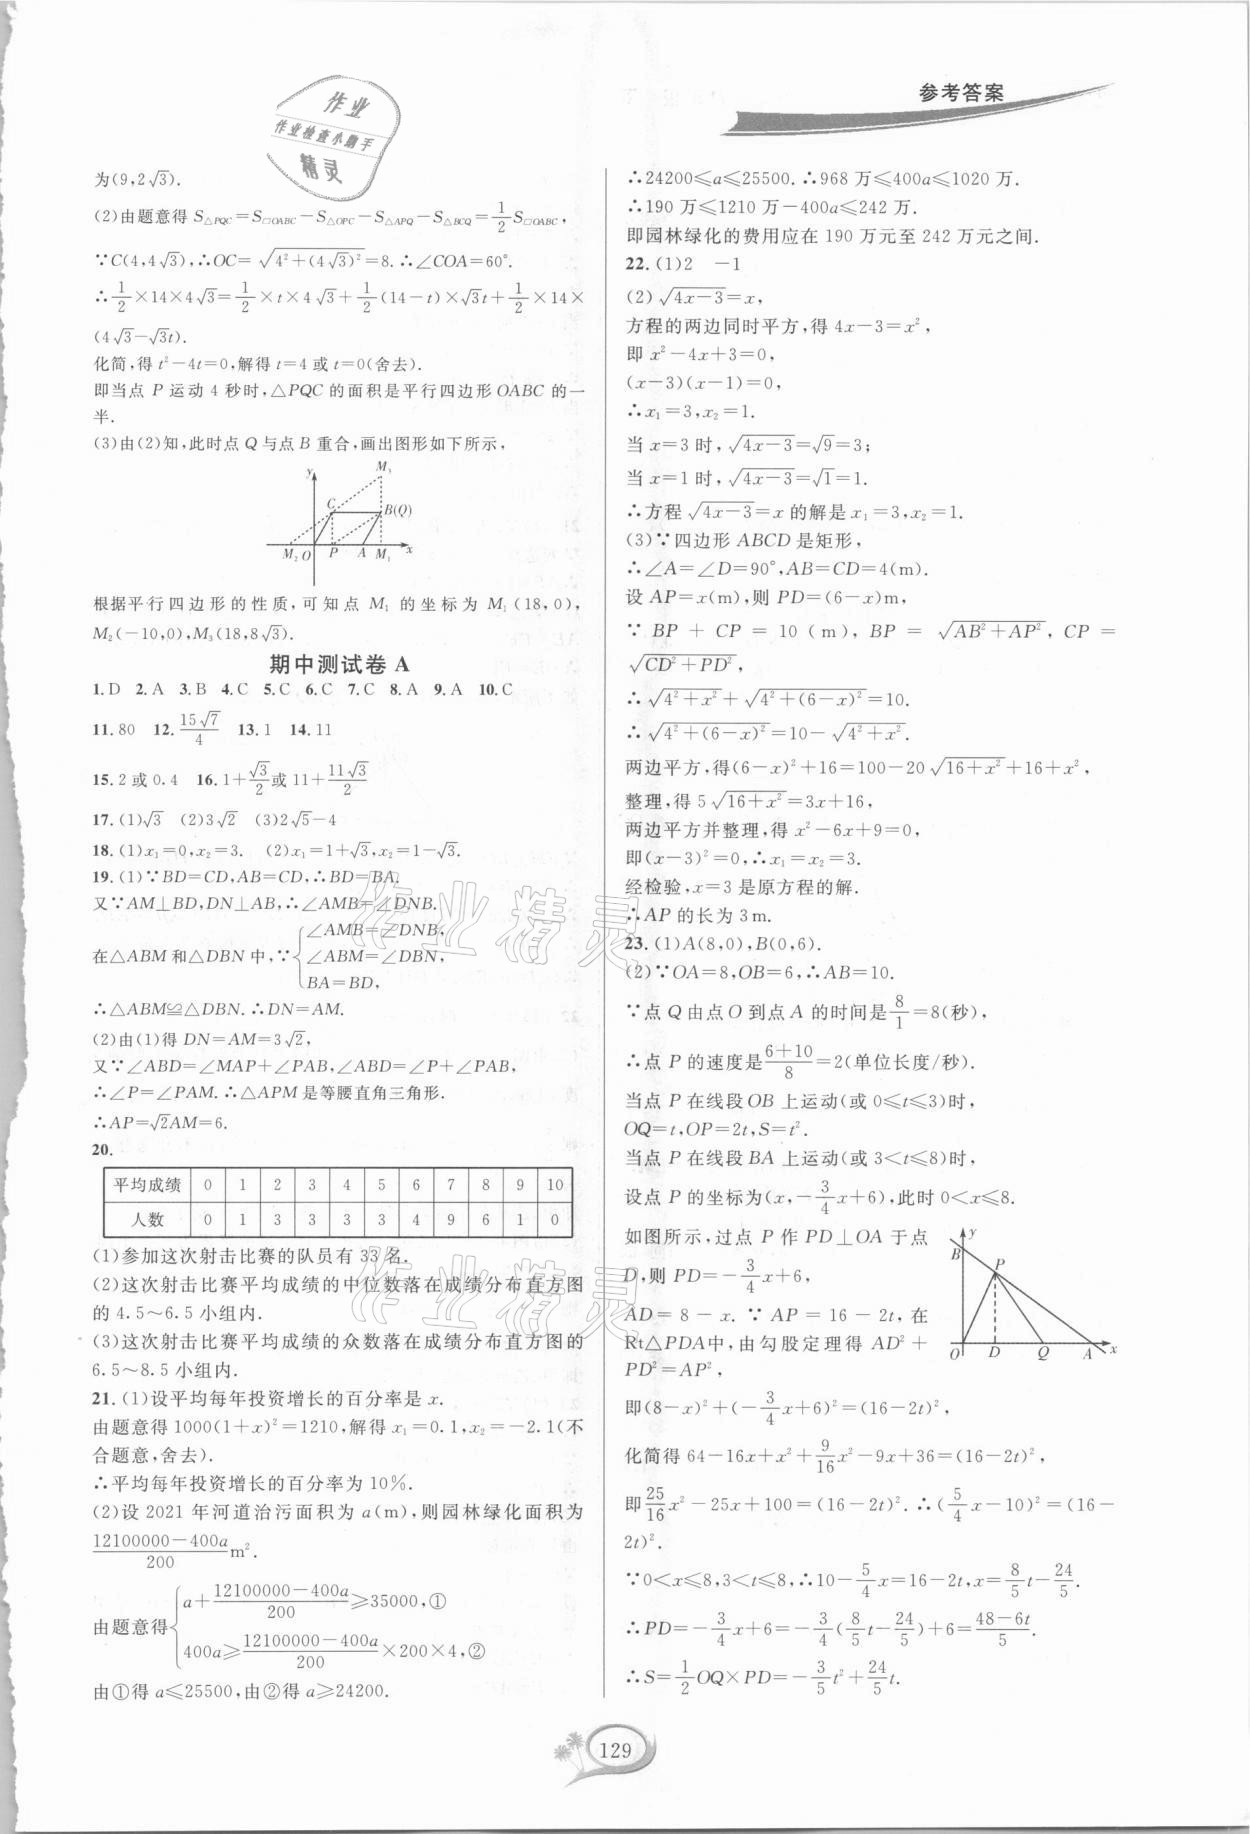 参考答案
作业
作业检查小助手
精灵
为(9,2√3).
(2)由题意得 S△PQC=S□OABC−S△OPC−S△APQ−S△BCQ=1/2 S□OABC,
∵C(4,4√3),∴OC=√(4²+(4√3)²)=8.∴∠COA=60°.
∴1/2×14×4√3=1/2×t×4√3+1/2(14−t)×√3t+1/2×14×
(4√3−√3t).
化简,得 t²−4t=0,解得 t=4 或 t=0(舍去).
即当点 P 运动 4 秒时,△PQC 的面积是平行四边形 OABC 的一
半.
(3)由(2)知,此时点 Q 与点 B 重合,画出图形如下所示,
y M₃
C B(Q)
M₂ O P A M₁ x
根据平行四边形的性质,可知点 M₁ 的坐标为 M₁(18,0),
M₂(−10,0),M₃(18,8√3).
期中测试卷 A
1.D 2.A 3.B 4.C 5.C 6.C 7.C 8.A 9.A 10.C
11.80 12.15√7/4 13.1 14.11
15.2 或 0.4 16.1+√3/2或 11+11√3/2
17.(1)√3 (2)3√2 (3)2√5−4
18.(1)x₁=0,x₂=3. (2)x₁=1+√3,x₂=1−√3.
19.(1)∵BD=CD,AB=CD,∴BD=BA.
又∵AM⊥BD,DN⊥AB,∴∠AMB=∠DNB.
在△ABM 和△DBN 中,∵{∠AMB=∠DNB,
∠ABM=∠DBN,
BA=BD,
∴△ABM≌△DBN.∴DN=AM.
(2)由(1)得 DN=AM=3√2,
又∵∠ABD=∠MAP+∠PAB,∠ABD=∠P+∠PAB,
∴∠P=∠PAM.∴△APM 是等腰直角三角形.
∴AP=√2AM=6.
20.
平均成绩 0 1 2 3 4 5 6 7 8 9 10
人数 0 1 3 3 3 3 4 9 6 1 0
(1)参加这次射击比赛的队员有 33 名.
(2)这次射击比赛平均成绩的中位数落在成绩分布直方图
的 4.5～6.5 小组内.
(3)这次射击比赛平均成绩的众数落在成绩分布直方图的
6.5～8.5 小组内.
21.(1)设平均每年投资增长的百分率是 x.
由题意得 1000(1+x)²=1210,解得 x₁=0.1,x₂=−2.1(不
合题意,舍去).
∴平均每年投资增长的百分率为 10%.
(2)设 2021 年河道治污面积为 a(m),则园林绿化面积为
(12100000−400a)/200 m².
由题意得{a+(12100000−400a)/200≥35000,①
400a≥(12100000−400a)/200×200×4,②
由①得 a≤25500,由②得 a≥24200.
∴24200≤a≤25500.∴968 万≤400a≤1020 万.
∴190 万≤1210 万−400a≤242 万.
即园林绿化的费用应在 190 万元至 242 万元之间.
22.(1)2 −1
(2)√(4x−3)=x,
方程的两边同时平方,得 4x−3=x²,
即 x²−4x+3=0,
(x−3)(x−1)=0,
∴x₁=3,x₂=1.
当 x=3 时,√(4x−3)=√9=3;
当 x=1 时,√(4x−3)=√1=1.
∴方程√(4x−3)=x 的解是 x₁=3,x₂=1.
(3)∵四边形 ABCD 是矩形,
∴∠A=∠D=90°,AB=CD=4(m).
设 AP=x(m),则 PD=(6−x)m,
∵ BP + CP = 10 (m), BP = √(AB²+AP²), CP =
√(CD²+PD²),
∴√(4²+x²)+√(4²+(6−x)²)=10.
∴√(4²+(6−x)²)=10−√(4²+x²).
两边平方,得(6−x)²+16=100−20√(16+x²)+16+x²,
整理,得 5√(16+x²)=3x+16,
两边平方并整理,得 x²−6x+9=0,
即(x−3)²=0,∴x₁=x₂=3.
经检验,x=3 是原方程的解.
∴AP 的长为 3 m.
23.(1)A(8,0),B(0,6).
(2)∵OA=8,OB=6,∴AB=10.
∵点 Q 由点 O 到点 A 的时间是8/1=8(秒),
∴点 P 的速度是(6+10)/8=2(单位长度/秒).
当点 P 在线段 OB 上运动(或 0≤t≤3)时,
OQ=t,OP=2t,S=t².
当点 P 在线段 BA 上运动(或 3<t≤8)时,
设点 P 的坐标为(x,−3/4x+6),此时 0<x≤8.
如图所示,过点 P 作 PD⊥OA 于点
D,则 PD=−3/4x+6,
AD=8−x.∵AP=16−2t,在
Rt△PDA中,由勾股定理得 AD²+
PD²=AP²,
y
B P
O D Q A x
即(8−x)²+(−3/4x+6)²=(16−2t)²,
化简得 64−16x+x²+9/16x²−9x+36=(16−2t)²,
即25/16x²−25x+100=(16−2t)².∴(5/4x−10)²=(16−
2t)².
∵0<x≤8,3<t≤8,∴10−5/4x=16−2t,x=8/5t−24/5.
∴PD=−3/4x+6=−3/4(8/5t−24/5)+6=(48−6t)/5.
∴S=1/2OQ×PD=−3/5t²+24/5t.
作业精灵
作业精灵
129